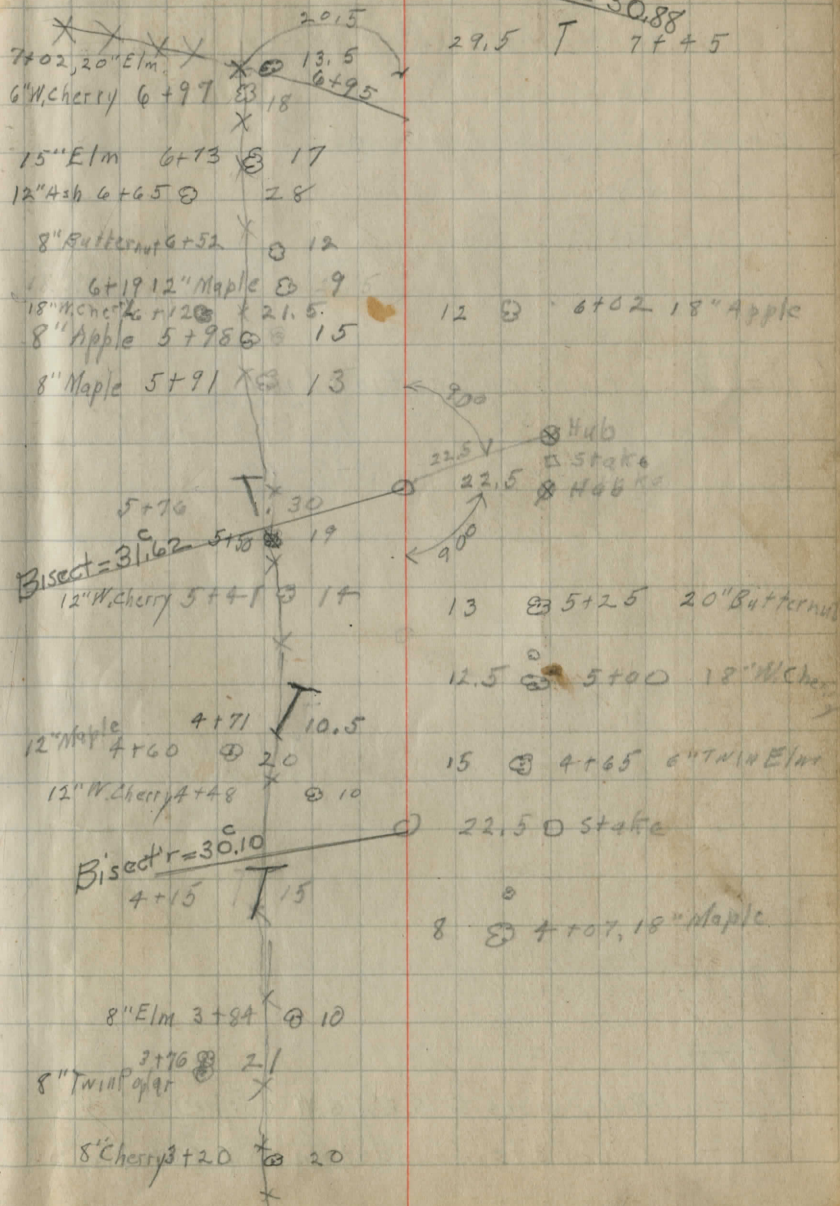 30.88
20.5
29.5 T 7+45
7+02, 20" Elm 13.5
6+95
6" W. Cherry 6+97 18
15" Elm 6+73 17
12" Ash 6+65 28
8" Butternut 6+52 12
6+19 12" Maple 9
18" W. Cherry 6+12 21.5
12 6+02 18" Apple
8" Apple 5+98 15
8" Maple 5+91 13
90°
22.5 Hub
Stake
22.5 Hub
5+76 T 30
90°
Bisect = 31.62 c
5+50 19
12" W. Cherry 5+41 14
13 5+25 20" Butternut
12.5 5+00 18" W. Cherry
4+71 T 10.5
12" Maple 4+60 20
15 4+65 6" Twin Elm
12" W. Cherry 4+48 10
22.5 Stake
Bisect'r = 30.10 c
4+15 T 15
8 4+07, 18" Maple
8" Elm 3+84 10
3+76 21
8" Twin Poplar
8" Cherry 3+20 20